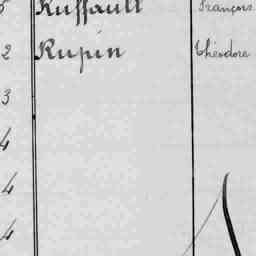 Ruffault François
2 Rupin Théodore
3
4
4
4